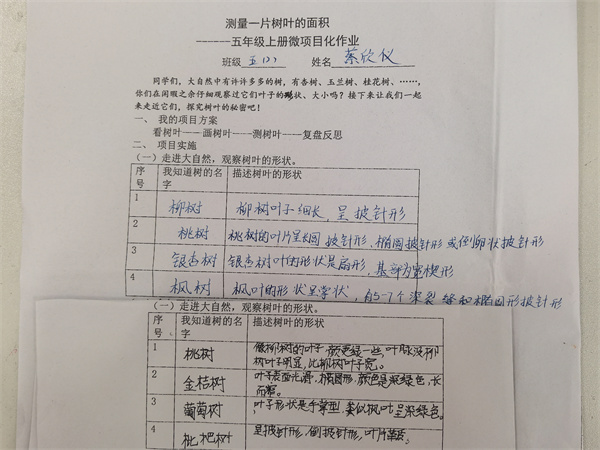 测量一片树叶的面积
------五年级上册微项目化作业
班级 五(2) 姓名 蔡欣仪
同学们，大自然中有许许多多的树，有杏树、玉兰树、桂花树、……，
你们在闲暇之余仔细观察过它们叶子的形状、大小吗？接下来让我们一起
来走近它们，探究树叶的秘密吧！
一、 我的项目方案
看树叶——画树叶----测树叶----复盘反思
二、 项目实施
（一）走进大自然，观察树叶的形状。
序号 我知道树的名字 描述树叶的形状
1 柳树 柳树叶子细长，呈披针形
2 桃树 桃树的叶片呈长圆披针形、椭圆披针形或倒卵状披针形
3 银杏树 银杏树叶的形状是扇形，基部为宽楔形
4 枫树 枫叶的形状呈掌状，有5-7个深裂
（一）走进大自然，观察树叶的形状。
序号 我知道树的名字 描述树叶的形状
1 桃树 像柳树的叶子，颜色绿一些，叶脉没柳
树叶子明显，比柳树叶子宽。
2 金桔树 叶子表面光滑，椭圆形，颜色是深绿色，长
3 葡萄树 叶子形状是手掌型，类似枫叶呈深绿色。
4 枇杷树 呈披针形，倒披针形，叶片